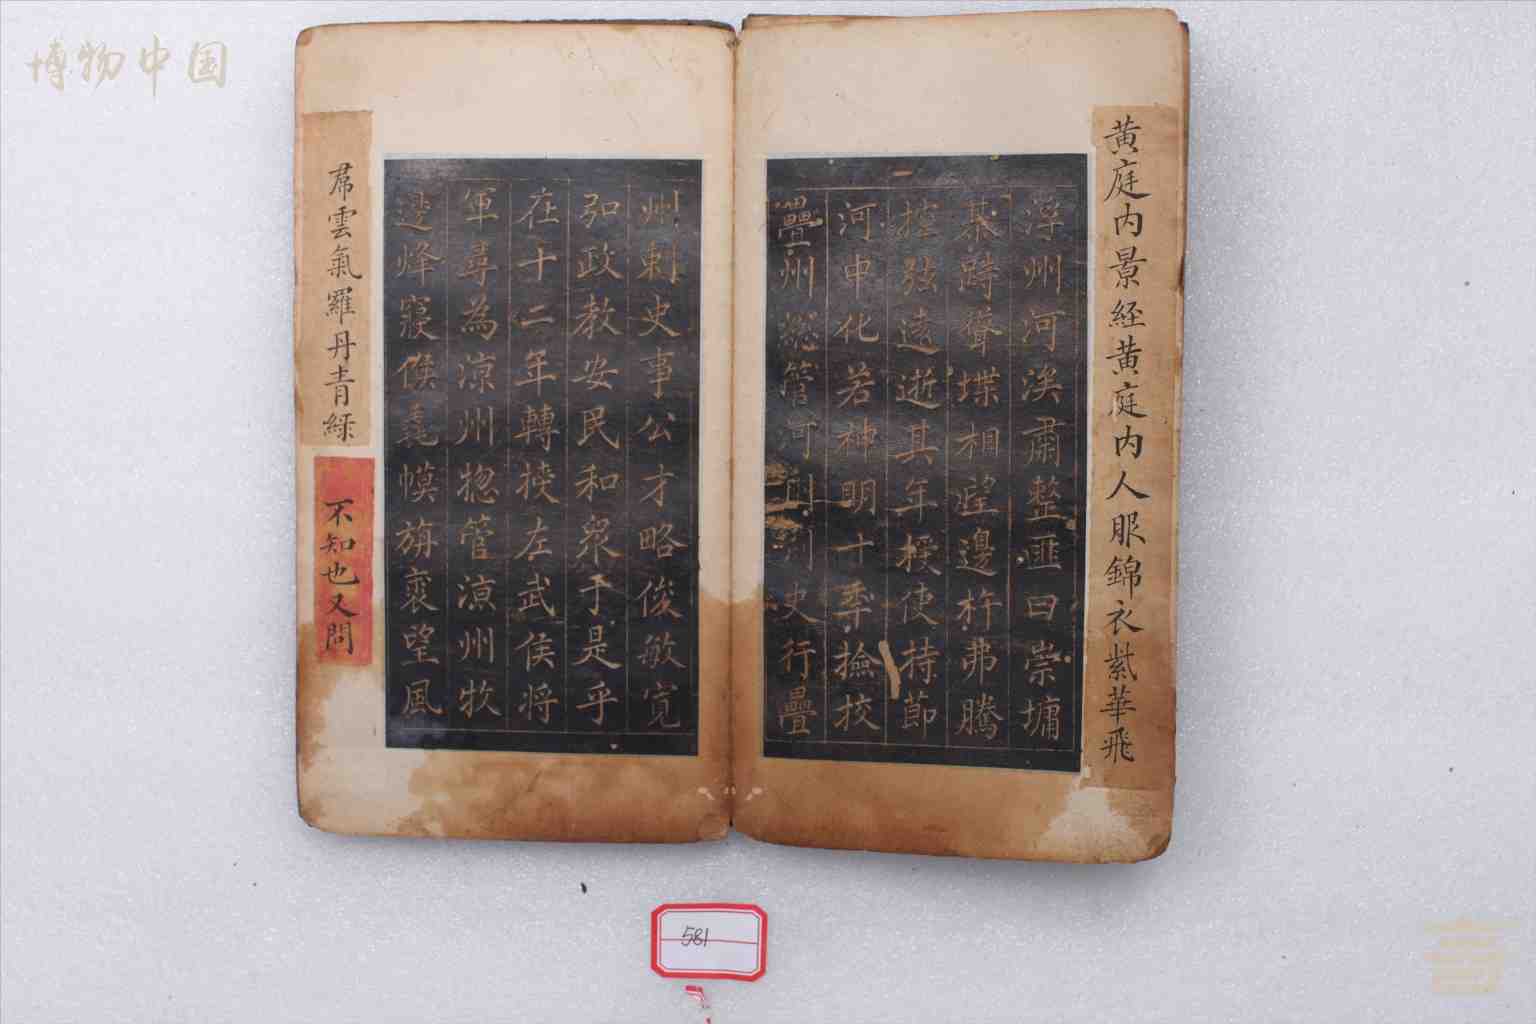 博物中国
黄庭内景経黄庭内人服錦衣紫華飛
浮州河湟肅整匪曰崇墉
綦跱聳堞相望邊柝弗騰
控弦遠逝其年授使持節
河中化若神明十季撿挍
疊州総管河州刺史行疊
州刺史事公才略俊敏寛
弘政教安民和衆于是乎
在十二年轉授左武侯将
軍尋為涼州揔管涼州牧
邊烽寢候毳幙旃裘望風
帬雲氣羅丹青緑
不知也又問
581